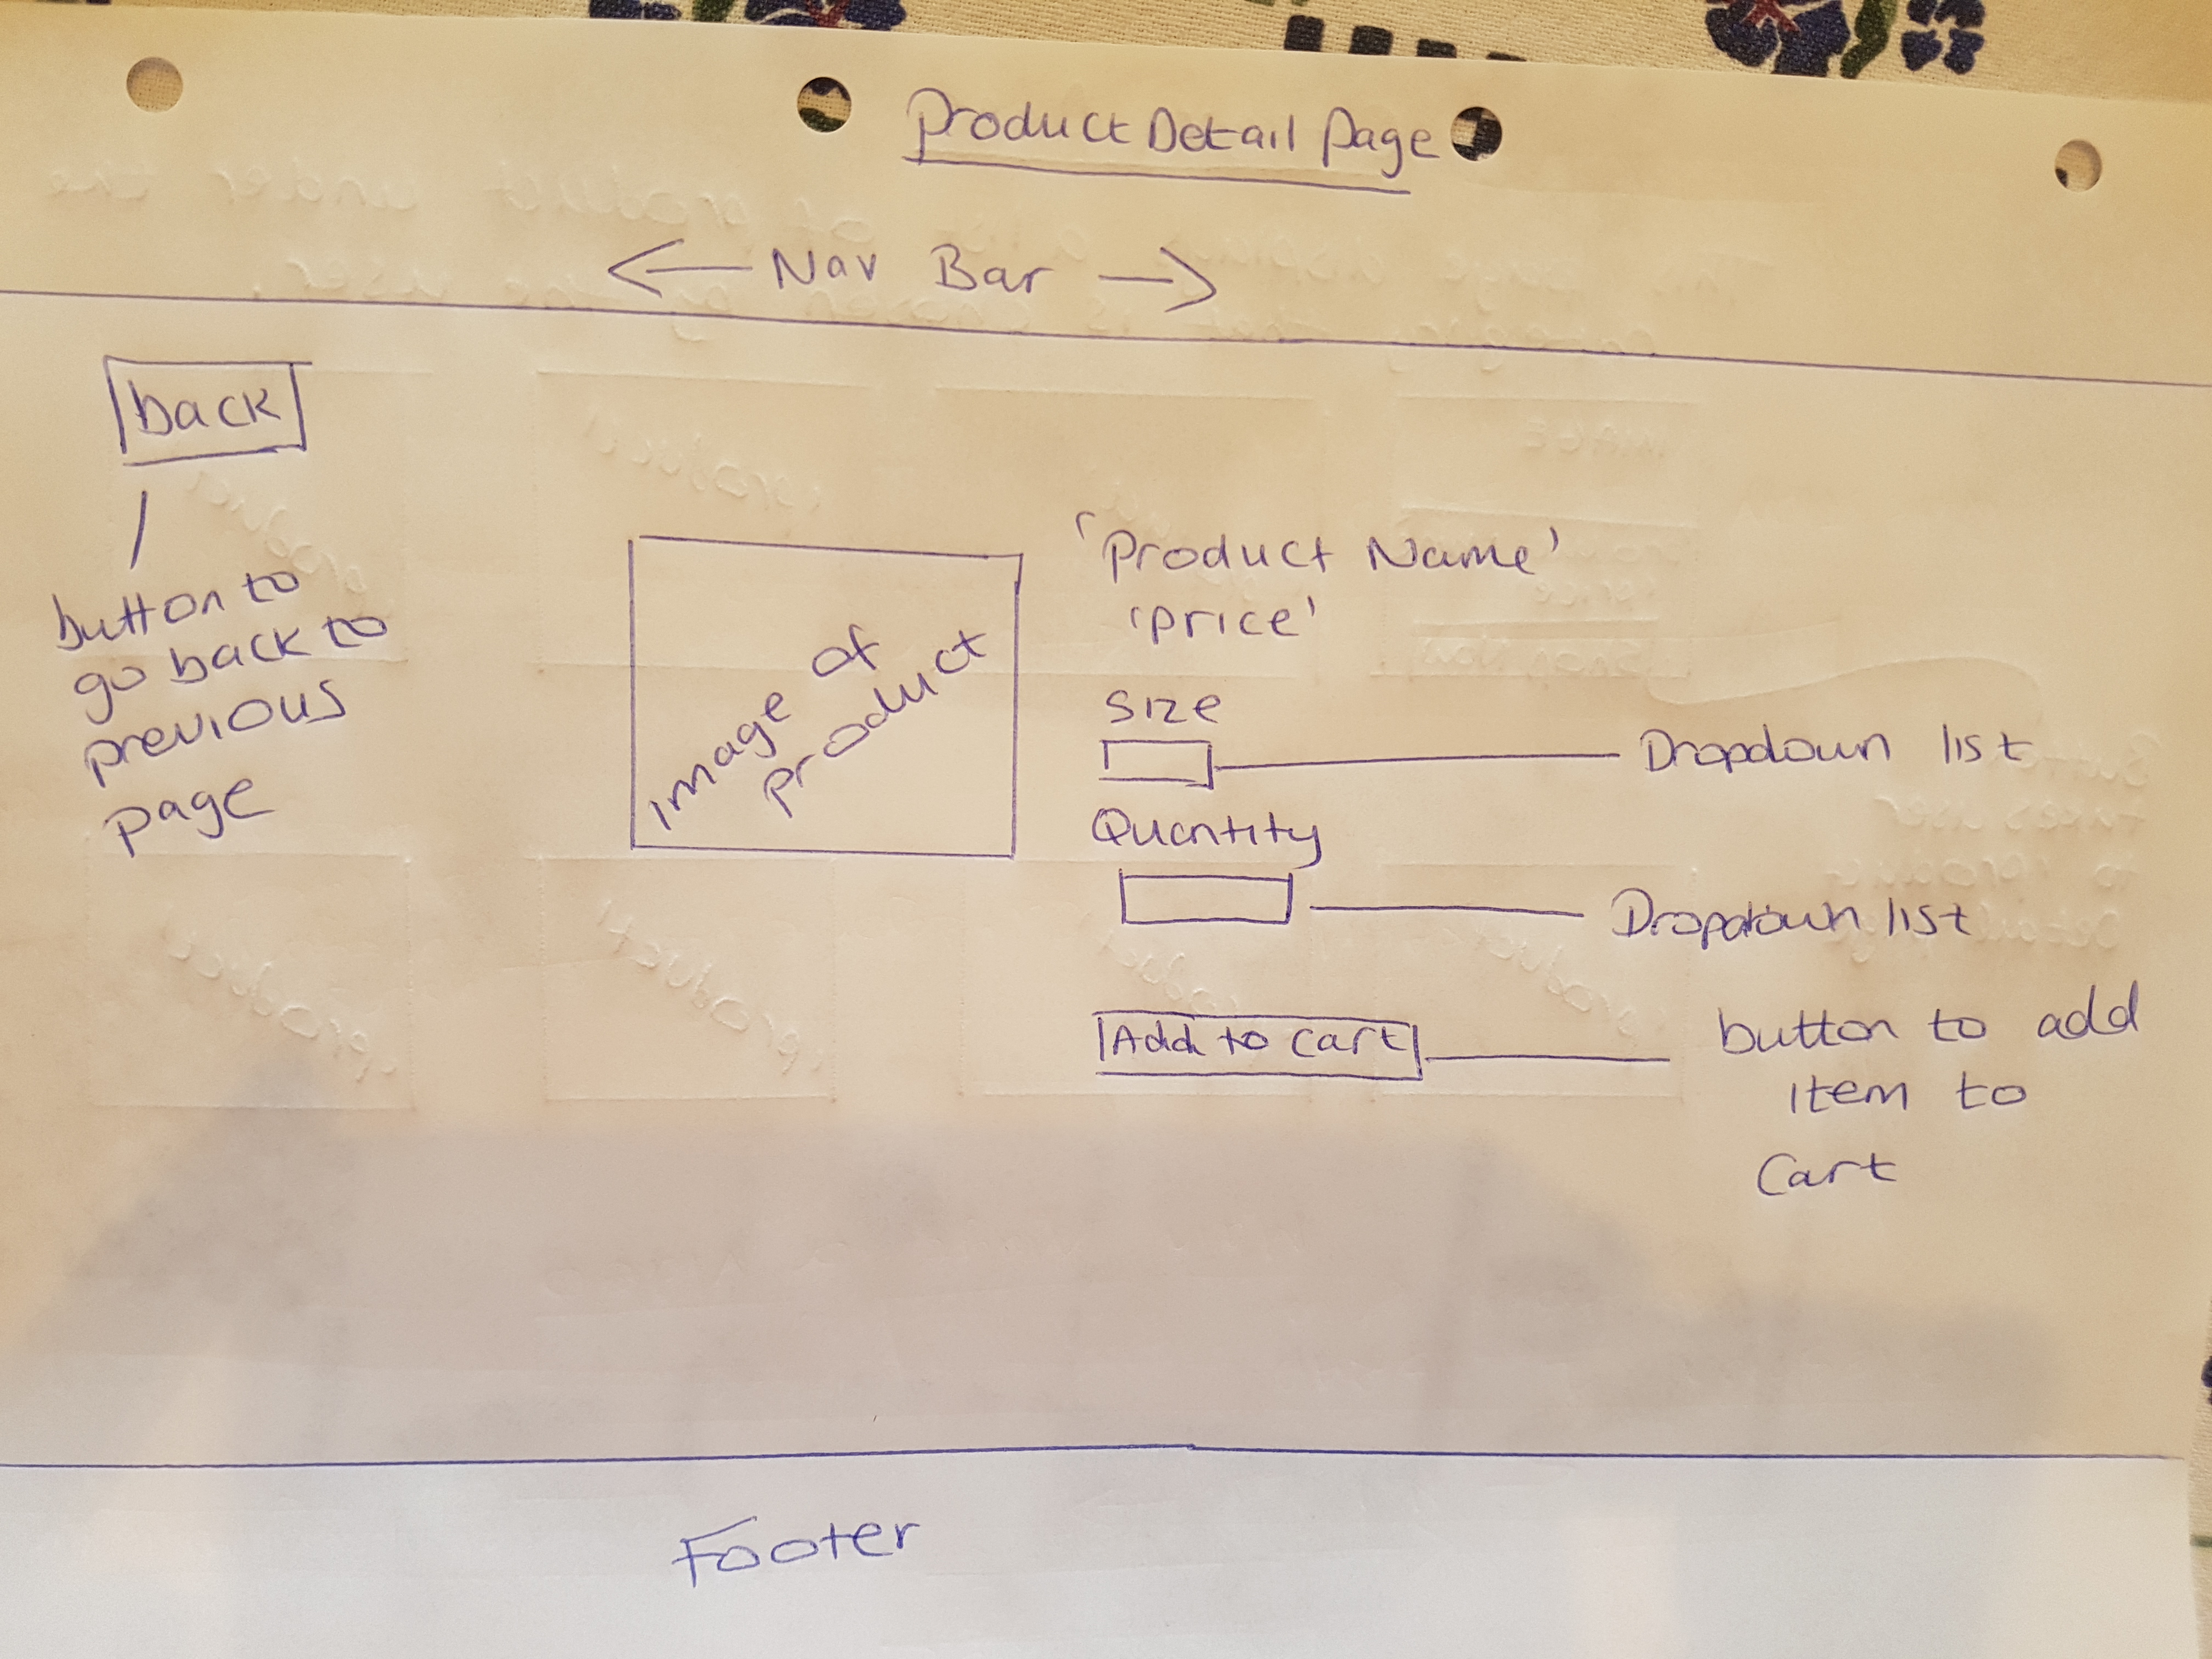 Product Detail Page
<— Nav Bar —>
back
button to
go back to
previous
page
image of
product
'Product Name'
'price'
Size
Dropdown list
Quantity
Dropdown list
Add to Cart
button to add
item to
Cart
Footer